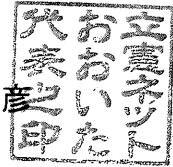 立憲ネット
おおいた
代表之印
彦